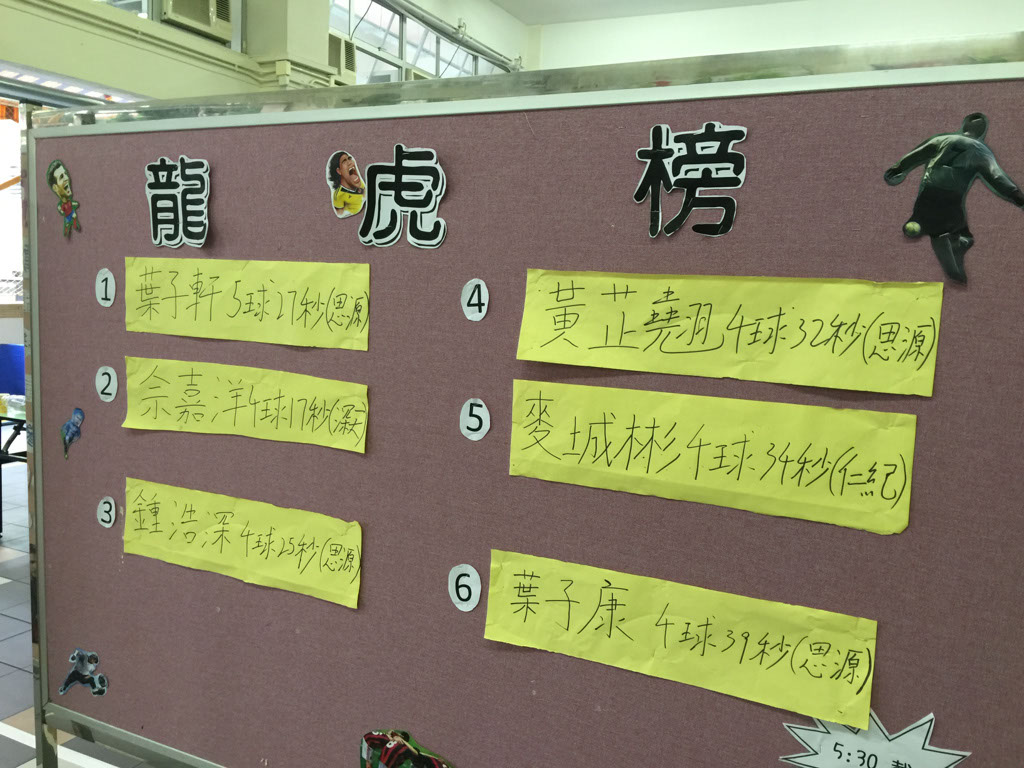 龍虎榜
1 葉子軒 5球27秒(思源)
2 佘嘉洋 4球17秒(深天)
3 鍾浩深 4球25秒(思源)
4 黃芷堯 4球32秒(思源)
5 麥城彬 4球34秒(仁紀)
6 葉子康 4球39秒(思源)
5:30